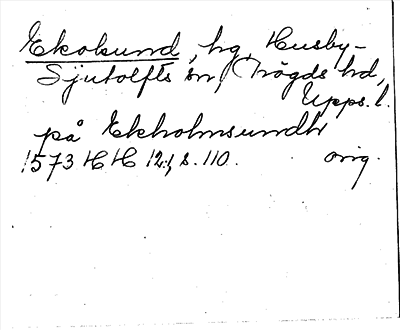 Ekolsund, hg, Husby-
Sjutolfts sn, Trögds hd,
Upps. l.
på Ekholmsundh
1573 HH 12:, s. 110. orig.